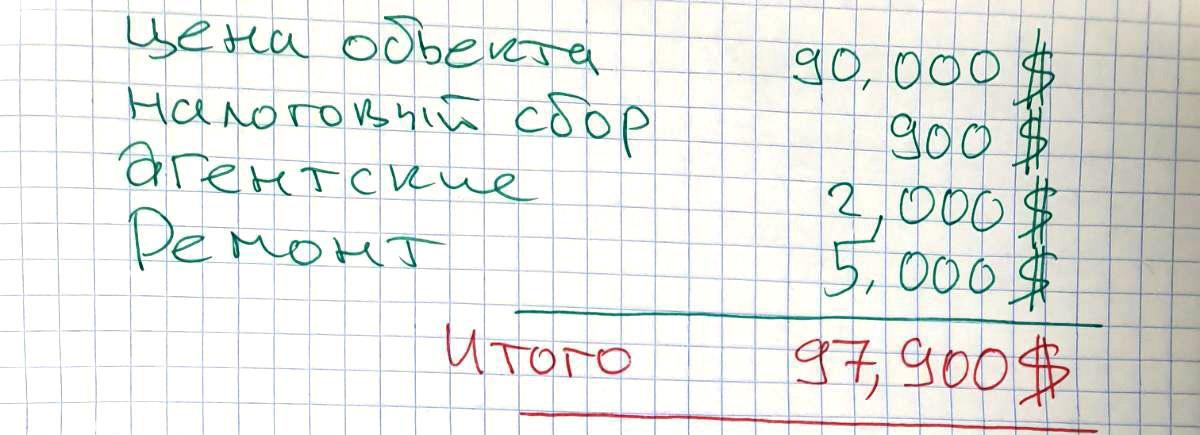 Цена обьекта 90,000 $
Налоговый сбор 900 $
Агентские 2,000 $
Ремонт 5,000 $
Итого 97,900 $